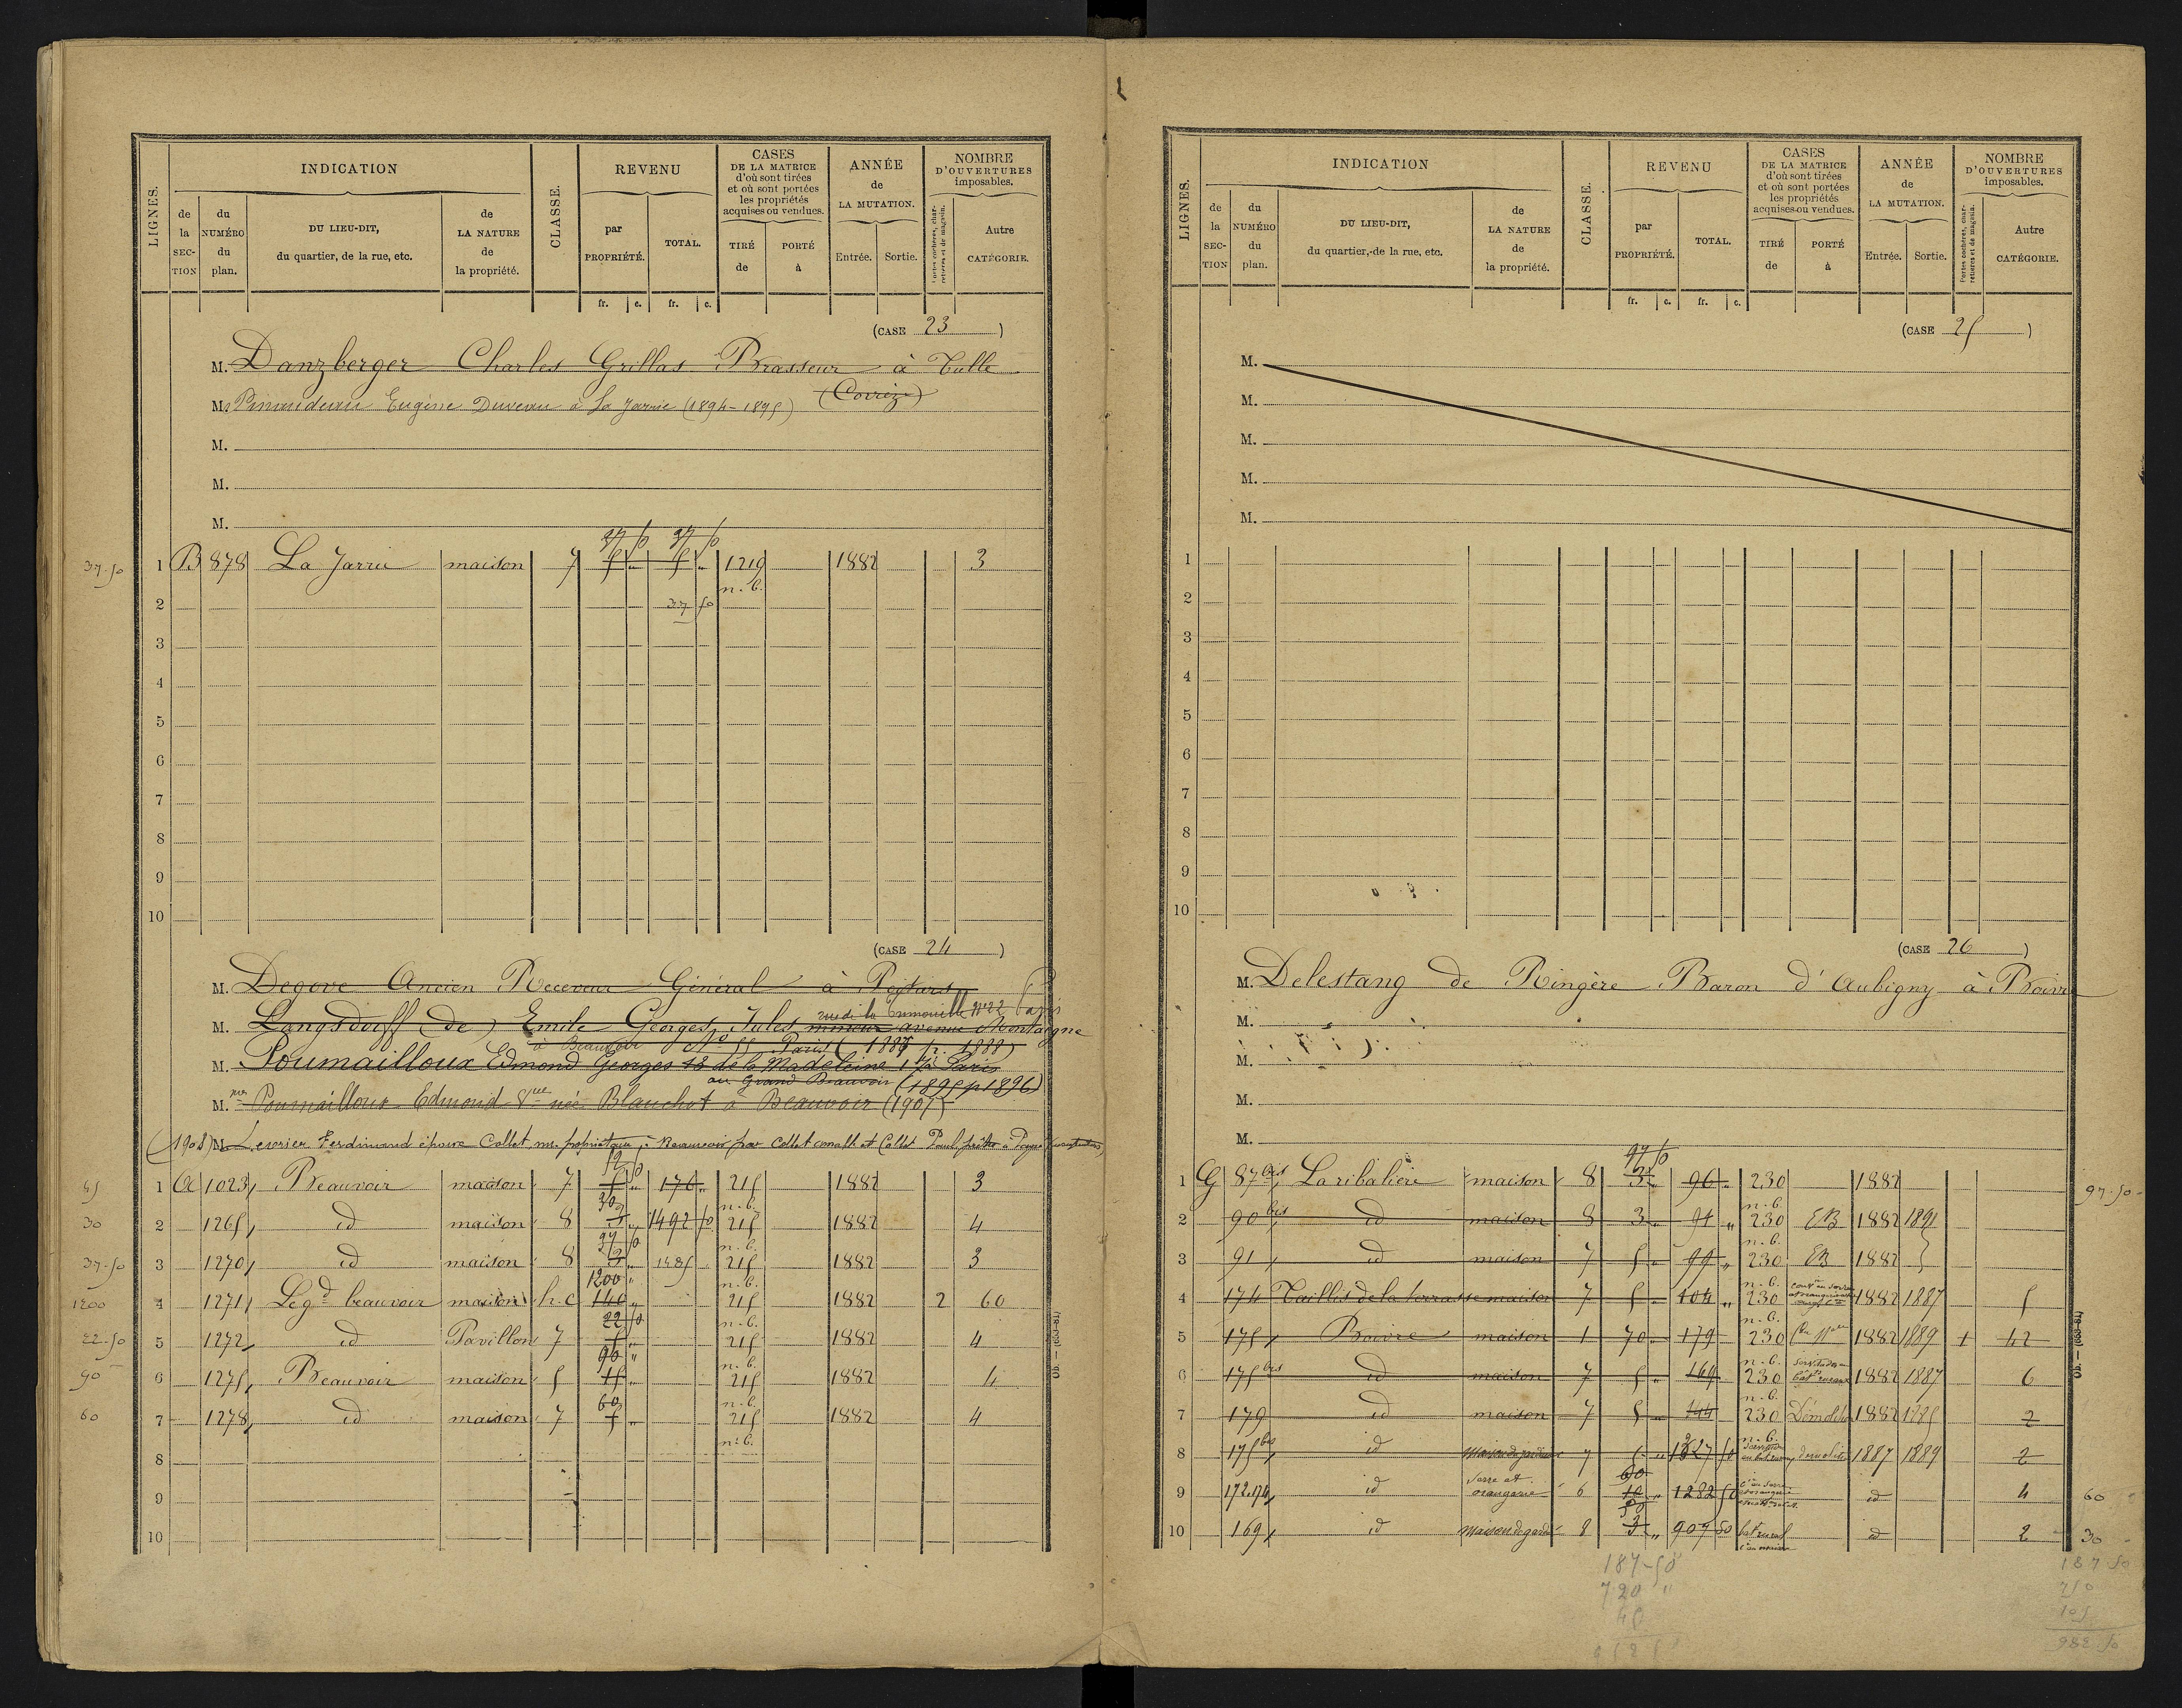 LIGNES.
INDICATION
CLASSE.
REVENU
CASES
DE LA MATRICE
d'où sont tirées
et où sont portées
les propriétés
acquises ou vendues.
ANNÉE
de
LA MUTATION.
NOMBRE
D'OUVERTURES
imposables.
de la SECTION
du NUMÉRO du plan.
DU LIEU-DIT,
du quartier, de la rue, etc.
de LA NATURE de la propriété.
par PROPRIÉTÉ.
TOTAL.
TIRÉ de
PORTÉ à
Entrée.
Sortie.
Portes cochères, charretières et de magasin.
Autre CATÉGORIE.
fr. c. fr. c.
(CASE 23)
M. Danzberger Charles Grillas Brasseur à Tulle
(Corrèze)
M. Pinaudeau Eugène Duveau à La Jarrie (1894-1895)
M.
M.
M.
37 50 37 50
37-50 1 B 878 La Jarrie maison 7 5 „ 5 „ 1219 1882 3
n.b.
2 37 50
3
4
5
6
7
8
9
10
(CASE 24)
M. Degove Ancien Receveur Général à Poitiers
rue de la Trémouille n° 22 Paris
M. Langsdorff (de) Emile Georges Jules mineur avenue Montaigne
à Beauvoir N° 55 Paris (1887 p. 1888)
M. Poumailloux Edmond Georges 18 de la Madeleine Paris
au Grand Beauvoir (1895 p 1896)
M. Poumailloux Edmond Vve née Blanchot à Beauvoir (1907)
(1908) M. Levrier Ferdinand époux Collet, propriétaire à Beauvoir par Collet et Collet Paul
45 1 A 1023 Beauvoir maison 7 5 „ 176 „ 215 1882 3
n.b.
30 2 1265 id maison 8 3 „ 1492 50 215 1882 4
n.b.
37-50 3 1270 id maison 8 3 „ 1485 215 1882 3
1200 „ n.b.
1200 4 1271 Le gd beauvoir maison h.c 140 „ 215 1882 2 60
22 50 n.b.
22-50 5 1272 id Pavillon 7 5 „ 215 1882 4
90 „ n.b.
90 6 1275 Beauvoir maison 5 15 „ 215 1882 4
60 n.b.
60 7 1278 id maison 7 5 „ 215 1882 4
n.b.
8
9
10
LIGNES.
INDICATION
CLASSE.
REVENU
CASES
DE LA MATRICE
d'où sont tirées
et où sont portées
les propriétés
acquises ou vendues.
ANNÉE
de
LA MUTATION.
NOMBRE
D'OUVERTURES
imposables.
de la SECTION
du NUMÉRO du plan.
DU LIEU-DIT,
du quartier, de la rue, etc.
de LA NATURE de la propriété.
par PROPRIÉTÉ.
TOTAL.
TIRÉ de
PORTÉ à
Entrée.
Sortie.
Portes cochères, charretières et de magasin.
Autre CATÉGORIE.
fr. c. fr. c.
(CASE 25)
M.
M.
M.
M.
M.
1
2
3
4
5
6
7
8
9
10
(CASE 26)
M. Delestang de Ringère Baron d'Aubigny à Boivre
M.
M.
M.
M.
97 50
1 G 87 bis Laribalière maison 8 3 „ 96 „ 230 1882 97-50
n.b.
2 90 bis id maison 8 3 „ 91 „ 230 EB 1882 1891
n.b.
3 91 id maison 7 5 „ 99 „ 230 EB 1882
n.b.
4 174 Taillis de la terrasse maison 7 5 „ 104 „ 230 1882 1887 5
n.b.
5 175 Boivre maison 1 70 „ 179 230 1882 1889 1 42
n.b.
6 175 bis id maison 7 5 „ 164 230 1882 1887 6
n.b.
7 179 id maison 7 5 „ 144 230 Démolition 1882 1885 2
n.b.
8 175 bis id Maison du jardinier 7 1327 50 démolition 1887 1889 2
60
9 172.174 id Serre et orangerie 6 10 „ 1282 50 id 4 60
10 169 id Maison de garde 8 3 „ 907 50 bat rural id 2 30
187-50
720 "
45
187 50
105
982 50